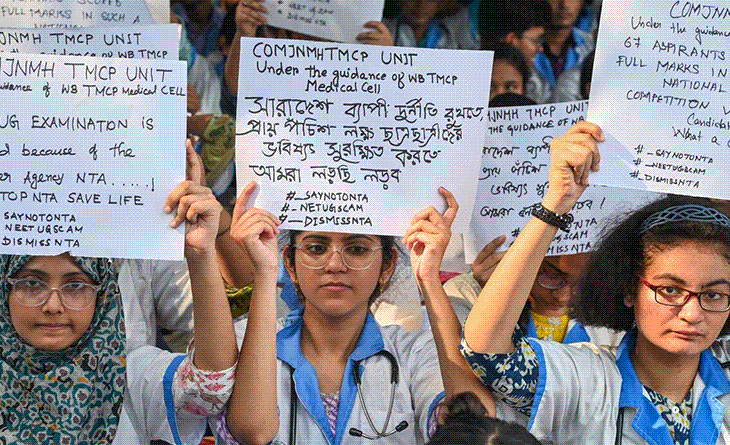 FULL MARKS IN SUCH A
NATIONAL
JNMH TMCP UNIT
the guidance of WB TMCP
JNMH TMCP UNIT
dance of WB TMCP Medical CELL
UG EXAMINATION is
d because of the
er Agency NTA......!
TOP NTA SAVE LIFE
SAYNOTONTA
NEETUGSCAM
DISMISSNTA
COMJNMHTMCP UNIT
Under the guidance of WB TMCP
Medical Cell
সারাদেশ ব্যাপী দুর্নীতি রুখতে
প্রায় পঁচিশ লক্ষ ছাত্রছাত্রীদের
ভবিষ্যৎ সুরক্ষিত করতে
আমরা লড়ছি লড়ব
#_SAYNOTONTA
#_NETUGSCAM
#_DISMISSNTA
JNMH TMCP UNIT
THE GUIDANCE OF WB
ব্যাপী
পঁচিশ
ভবিষ্যৎ
লড়
NOTONTA
UGSCAM
MISSNTA
COMJNM
Under the
67 ASPIRANTS
FULL MARKS IN
NATIONAL
COMPETITION
Candida
What a
#_SAYNOTONTA
#_NEETUGSCAM
#_DISMISSNTA